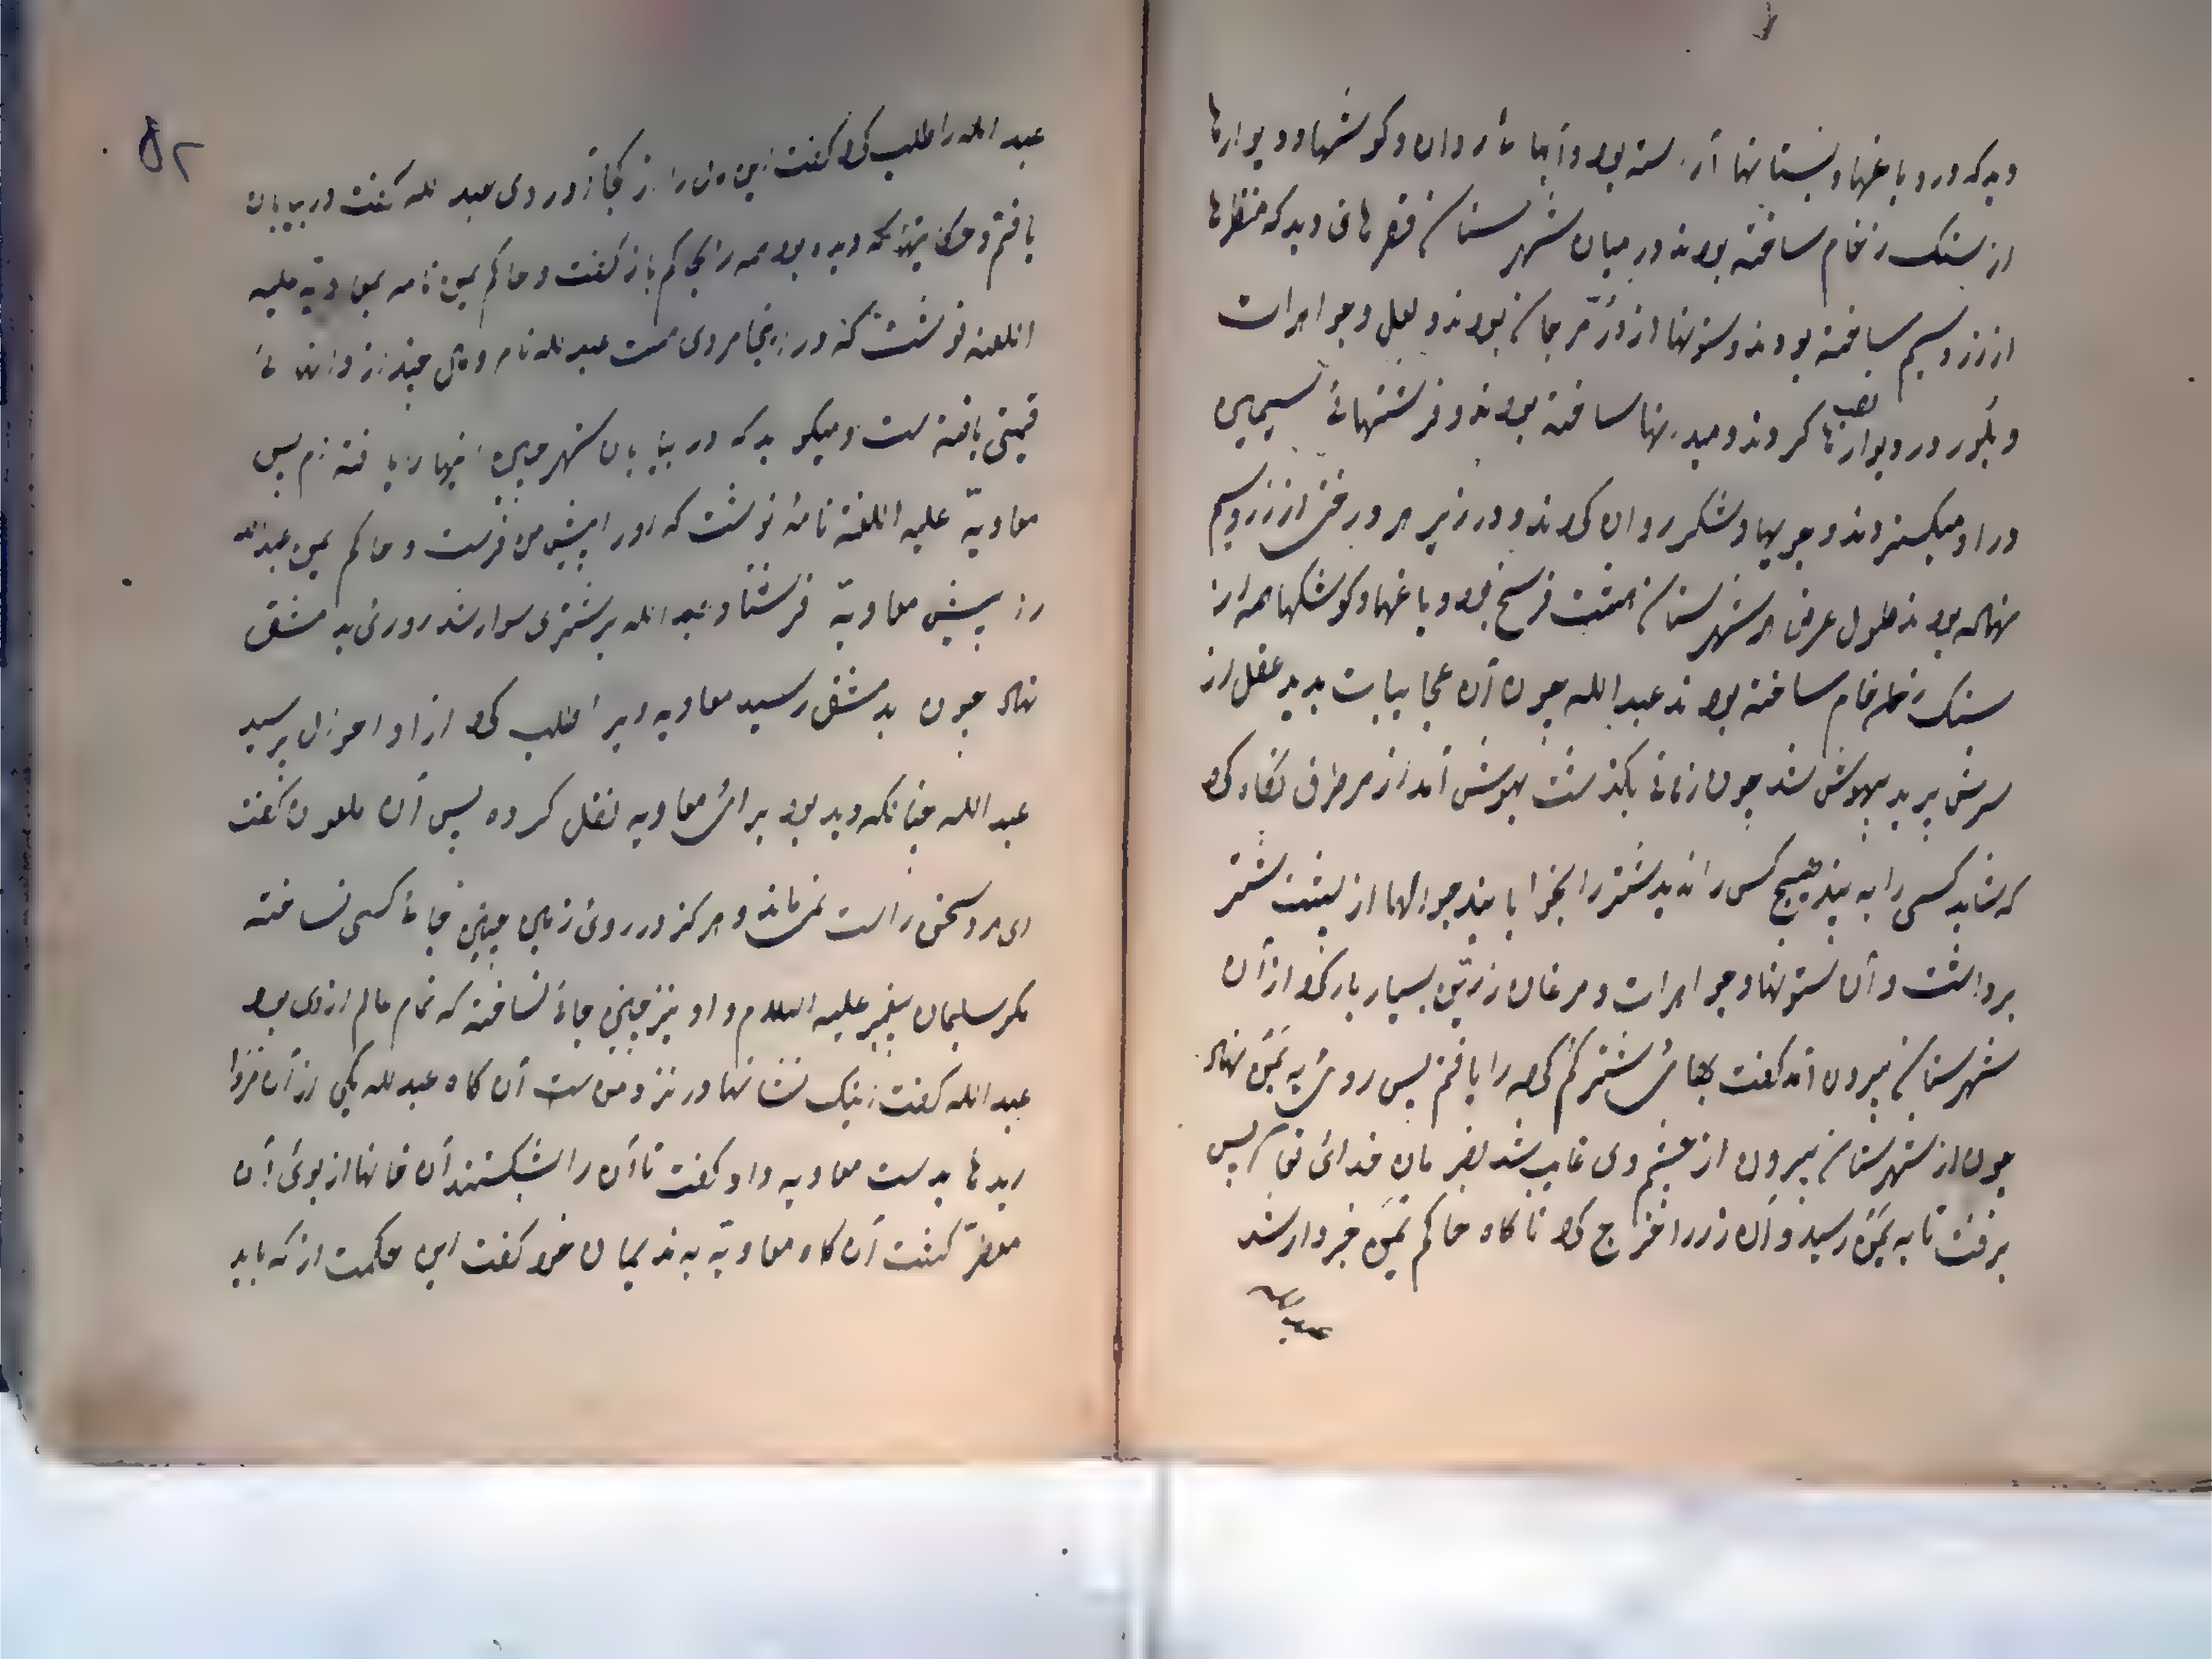 دید که در و باغها و بستانها آراسته بود و آبهاء روان و کوشها و دیوارها
از سنک رخام ساخته بودند در میان شهرستان قصرهای دید که منظرها
از زر و سیم ساخته بودند و ستونها از در مرجان بودند و لعل و جواهرات
و بلور در دیوارها نصب کردند و میدانها ساخته بودند و فرشتهائ سیمین
در او میکستردند و جویها و شکر روان کرده اند و در زیر هر درختی از زر و سیم
نهاده بودند طول عرض هر شهرستان هشت فرسخ بود و باغها و کوشکها همه از
سنک رخام خام ساخته بودند عبد الله چون آن عجایبات بدید عقل از
سرش پرید بیهوش شد چون زمانی بکذشت بهوش آمد از هر طرف نکاه کرد
که شاید کسی را به بیند هیچ کس را ندید شتر را بخوابانید جوالها از پشت شتر
برداشت و آن ستونها و جواهرات و مرغان زرین بسیار بار کرد از آن
شهرستان بیرون آمد کفت بهائ شتر کم کرده را یافتم پس روی به یمن نهاد
چون از شهرستان بیرون از چشم وی غایب شد بفرمان خدائ تعالی پس
برفت تا به یمن رسید و آن زر را خرج کرد تا کاه حاکم یمن خبردار شد
عبد الله
۵۲
عبد الله را طلب کرد کفت این مال را از کجا آوردی عبد الله کفت در بیابان
یافتم و حکایتها که دیده بود همه را بحاکم باز کفت و حاکم یمن نامه بمعاویه علیه
اللعنه نوشت که در اینجا مردی هست عبد الله نام و مال چند از
قیمتی یافته است و میکوید که در بیابان شهر چنین اینها را یافته ام پس
معاویة علیه اللعنة نامۀ نوشت که او را پیش من فرست و حاکم یمن عبد الله
را پیش معاویة فرستاد عبد الله بر شتری سوار شد روئ به دمشق
نهاد چون بدمشق رسید معاویه ویرا طلب کرد از او احوال پرسید
عبد الله چنانکه دید بود برائ معاویه نقل کرده پس آن ملعون کفت
ای مرد سخن راست نمی ماند و هرکز در روئ زمین چنین جاء کسی نساخته
مکر سلیمان پیغمبر علیه السلام و او نیز چنین جائ نساخته که تمام عالم از وی بود
عبد الله کفت اینک نشانها در نزد من است آن کاه عبد الله یکی از آن مروا
ریدها بدست معاویه داد کفت تا آن را بشکستند آن خانها از بوئ آن
معطر کشت آن کاه معاویة به ندیمان خود کفت این حکمت از که باید